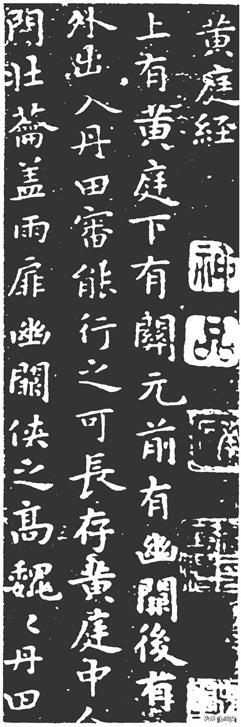 黄庭經
神品
上有黄庭下有關元前有幽闕後有
外出入丹田審能行之可長存黄庭中人
門壯蘥蓋兩扉幽闕俠之高魏〻丹田